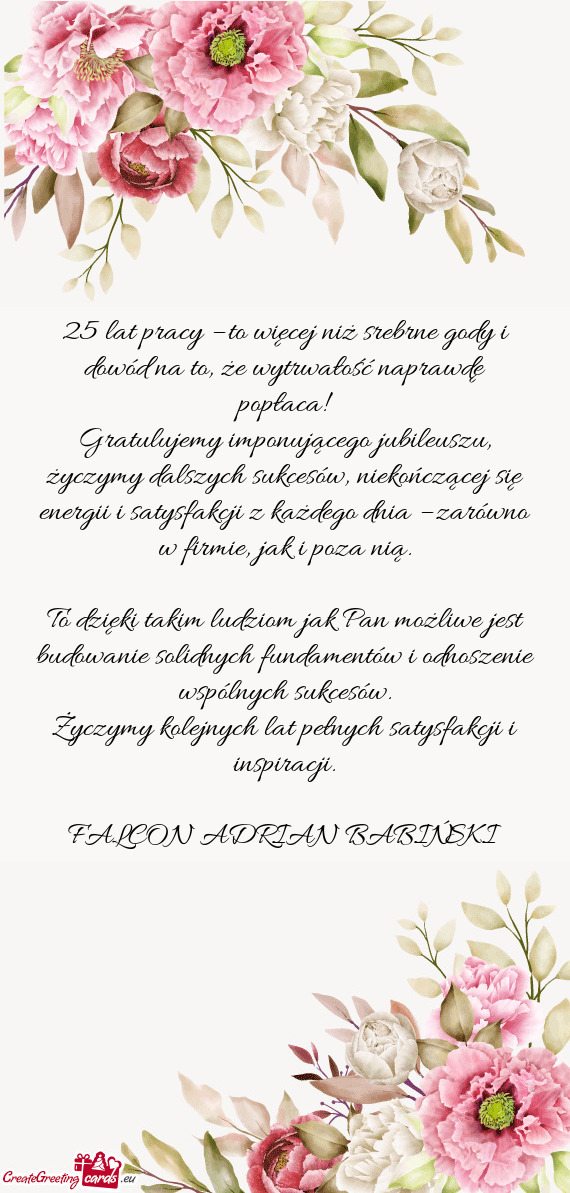 25 lat pracy – to więcej niż srebrne gody i
dowód na to, że wytrwałość naprawdę
popłaca!
Gratulujemy imponującego jubileuszu,
życzymy dalszych sukcesów, niekończącej się
energii i satysfakcji z każdego dnia – zarówno
w firmie, jak i poza nią.
To dzięki takim ludziom jak Pan możliwe jest
budowanie solidnych fundamentów i odnoszenie
wspólnych sukcesów.
Życzymy kolejnych lat pełnych satysfakcji i
inspiracji.
FALCON ADRIAN BABIŃSKI
CreateGreeting cards .eu